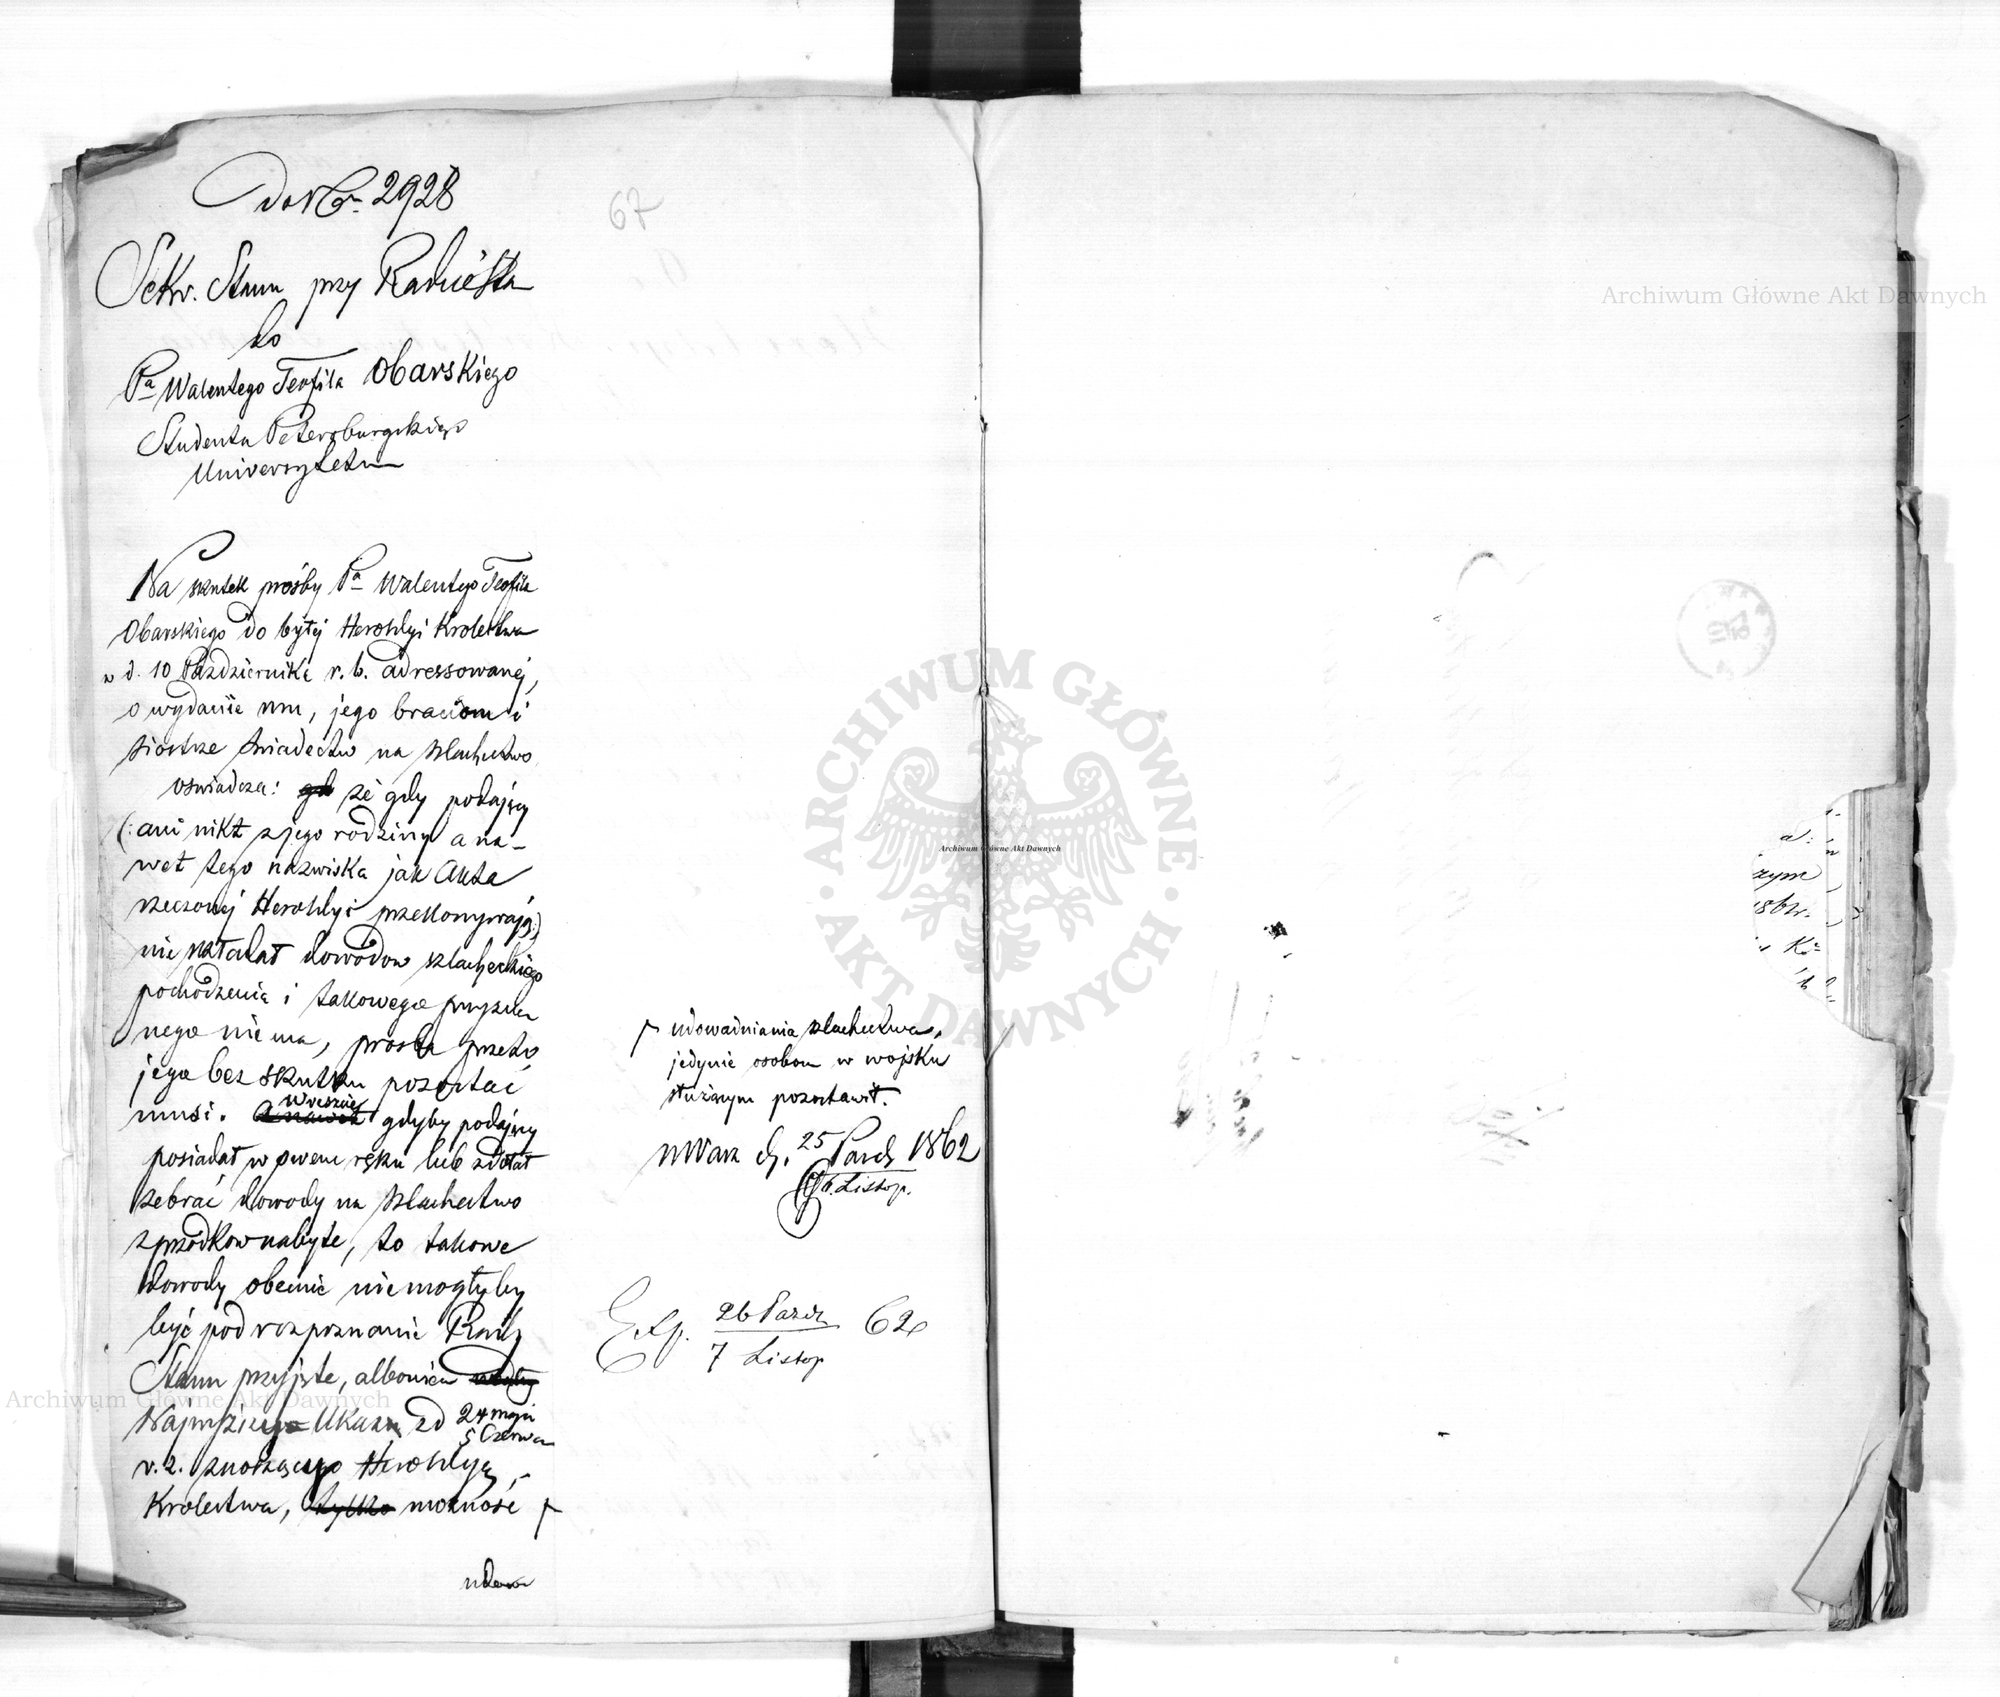 do Nr 2928
67
Sekr. Stanu przy Radzie Sta
do
Pa Walentego Teofila Obarskiego
Studenta Petersburgskiego
Uniwersytetu
Na skutek prośby Pa Walentego Teofila
Obarskiego do byłej Heroldyi Królestwa
w d. 10 Października r.b. adressowanej,
o wydanie mu, jego braciom i
siostrze świadectw na szlachectwo
oswiadcza: że gdy podający
(: ani nikt z jego rodziny a na-
wet tego nazwiska jak Akta
rzeczonej Heroldyi przekonywają:)
nie składał dowodow szlacheckiego
pochodzenia i takowego przyzna
nego nie ma, prosba przeto
jego bez skutku pozostać
musi. Wreszcie gdyby podający
posiadał w swem ręku lub zdołał
zebrać dowody na szlachectwo
z przodkow nabyte, to takowe
dowody obecnie nie mogłyby
być pod rozpoznanie Rady
Stanu przyjęte, albowiem
Najwyższego Ukazu od 24 maja
5 Czerwca
r.z. znoszącego Heroldyą
Krolestwa, tylko możność
udowa
udowadniania szlachectwa,
jedynie osobom w wojsku
służącym pozostawił.
w Warz d. 25 Paźdz 1862
6. Listop.
Exp. 26 Pazdz 62
7 Listop
Archiwum Główne Akt Dawnych
ARCHIWUM GŁÓWNE AKT DAWNYCH
Archiwum Główne Akt Dawnych
Archiwum Główne Akt Dawnych